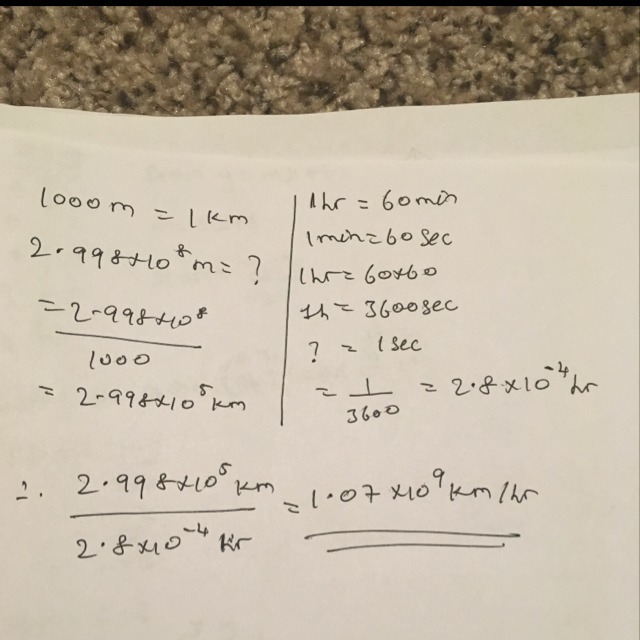 1000 m = 1 km
2.998×10⁸ m = ?
= 2.998×10⁸
1000
= 2.998×10⁵ km
1hr = 60 min
1min = 60 sec
1hr = 60×60
1h = 3600 sec
? = 1 sec
= 1/3600 = 2.8×10⁻⁴ hr
∴ 2.998×10⁵ km / 2.8×10⁻⁴ hr = 1.07×10⁹ km/hr